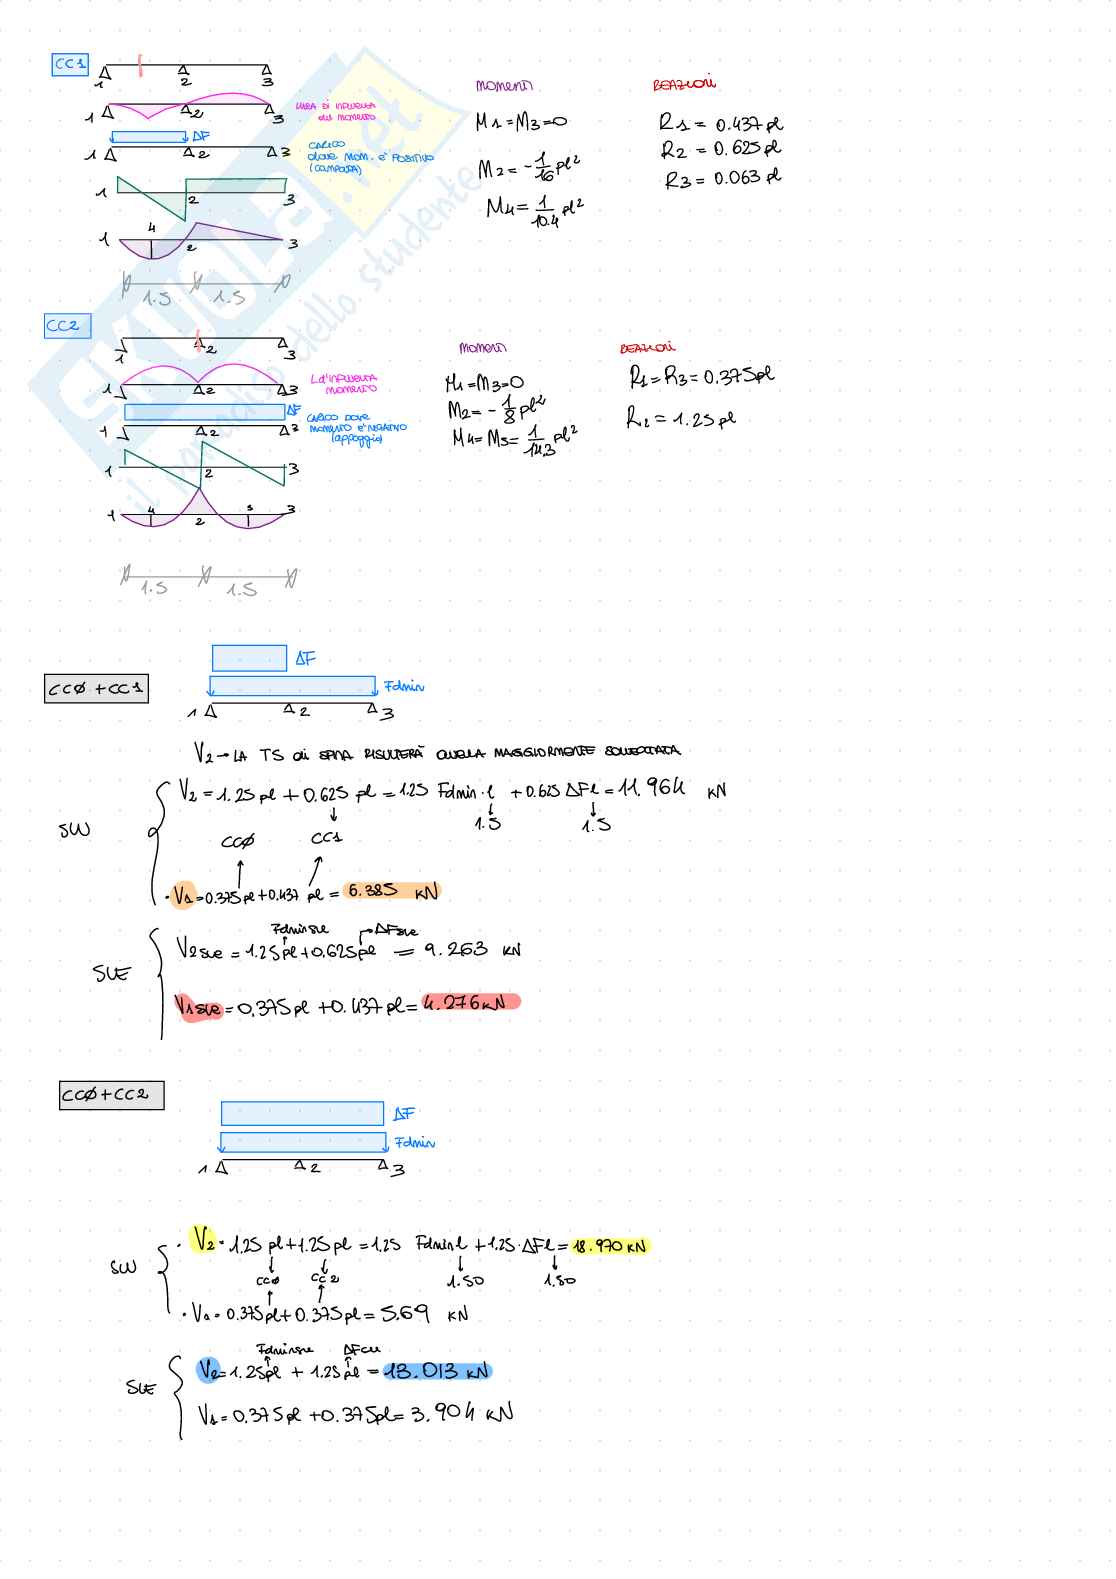 CC1
1 2 3
1 2 3
LINEA DI INFLUENZA
del MOMENTO
ΔF
1 2 3
CARICO
dove MOM. E' POSITIVO
(CAMPATA)
1 2 3
1 4 2 3
1.5 1.5
MOMENTI
M1 = M3 = 0
M2 = - 1/16 pl²
M4 = 1/10.4 pl²
REAZIONI
R1 = 0.437 pl
R2 = 0.625 pl
R3 = 0.063 pl
CC2
1 2 3
1 2 3
L d'INFLUENZA
MOMENTO
ΔF
1 2 3
CARICO DOVE
MOMENTO E' NEGATIVO
(appoggio)
1 2 3
1 4 2 5 3
1.5 1.5
MOMENTI
M1 = M3 = 0
M2 = - 1/8 pl²
M4 = M5 = 1/14.3 pl²
REAZIONI
R1 = R3 = 0.375 pl
R2 = 1.25 pl
CCØ + CC1
ΔF
Fdmin
1 2 3
V2 → LA TS di SPINA RISULTERÀ QUELLA MAGGIORMENTE SOLLECITATA
SLU
V2 = 1.25 pl + 0.625 pl = 1.25 Fdmin · l + 0.625 ΔF l = 11.964 kN
1.5 1.5
CCØ CC1
· V1 = 0.375 pl + 0.437 pl = 6.385 kN
SLE
Fdminsle ΔFsle
V2sle = 1.25 pl + 0.625 pl = 9.263 kN
V1sle = 0.375 pl + 0.437 pl = 4.276 kN
CCØ + CC2
ΔF
Fdmin
1 2 3
SLU
· V2 = 1.25 pl + 1.25 pl = 1.25 Fdmin l + 1.25 · ΔF l = 18.970 kN
CCØ CC2 1.50 1.50
· V1 = 0.375 pl + 0.375 pl = 5.69 kN
SLE
Fdminsle ΔFsle
V2 = 1.25 pl + 1.25 pl = 13.013 kN
V1 = 0.375 pl + 0.375 pl = 3.904 kN
SKUOLA.net
il paradiso dello studente